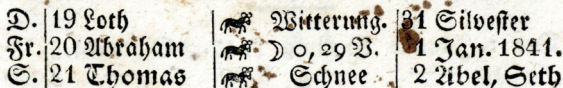 D. 19 Loth Witterung. 31 Silvester
Fr. 20 Abraham ☽ 0, 29 V. 1 Jan. 1841.
S. 21 Thomas Schnee 2 Abel, Seth